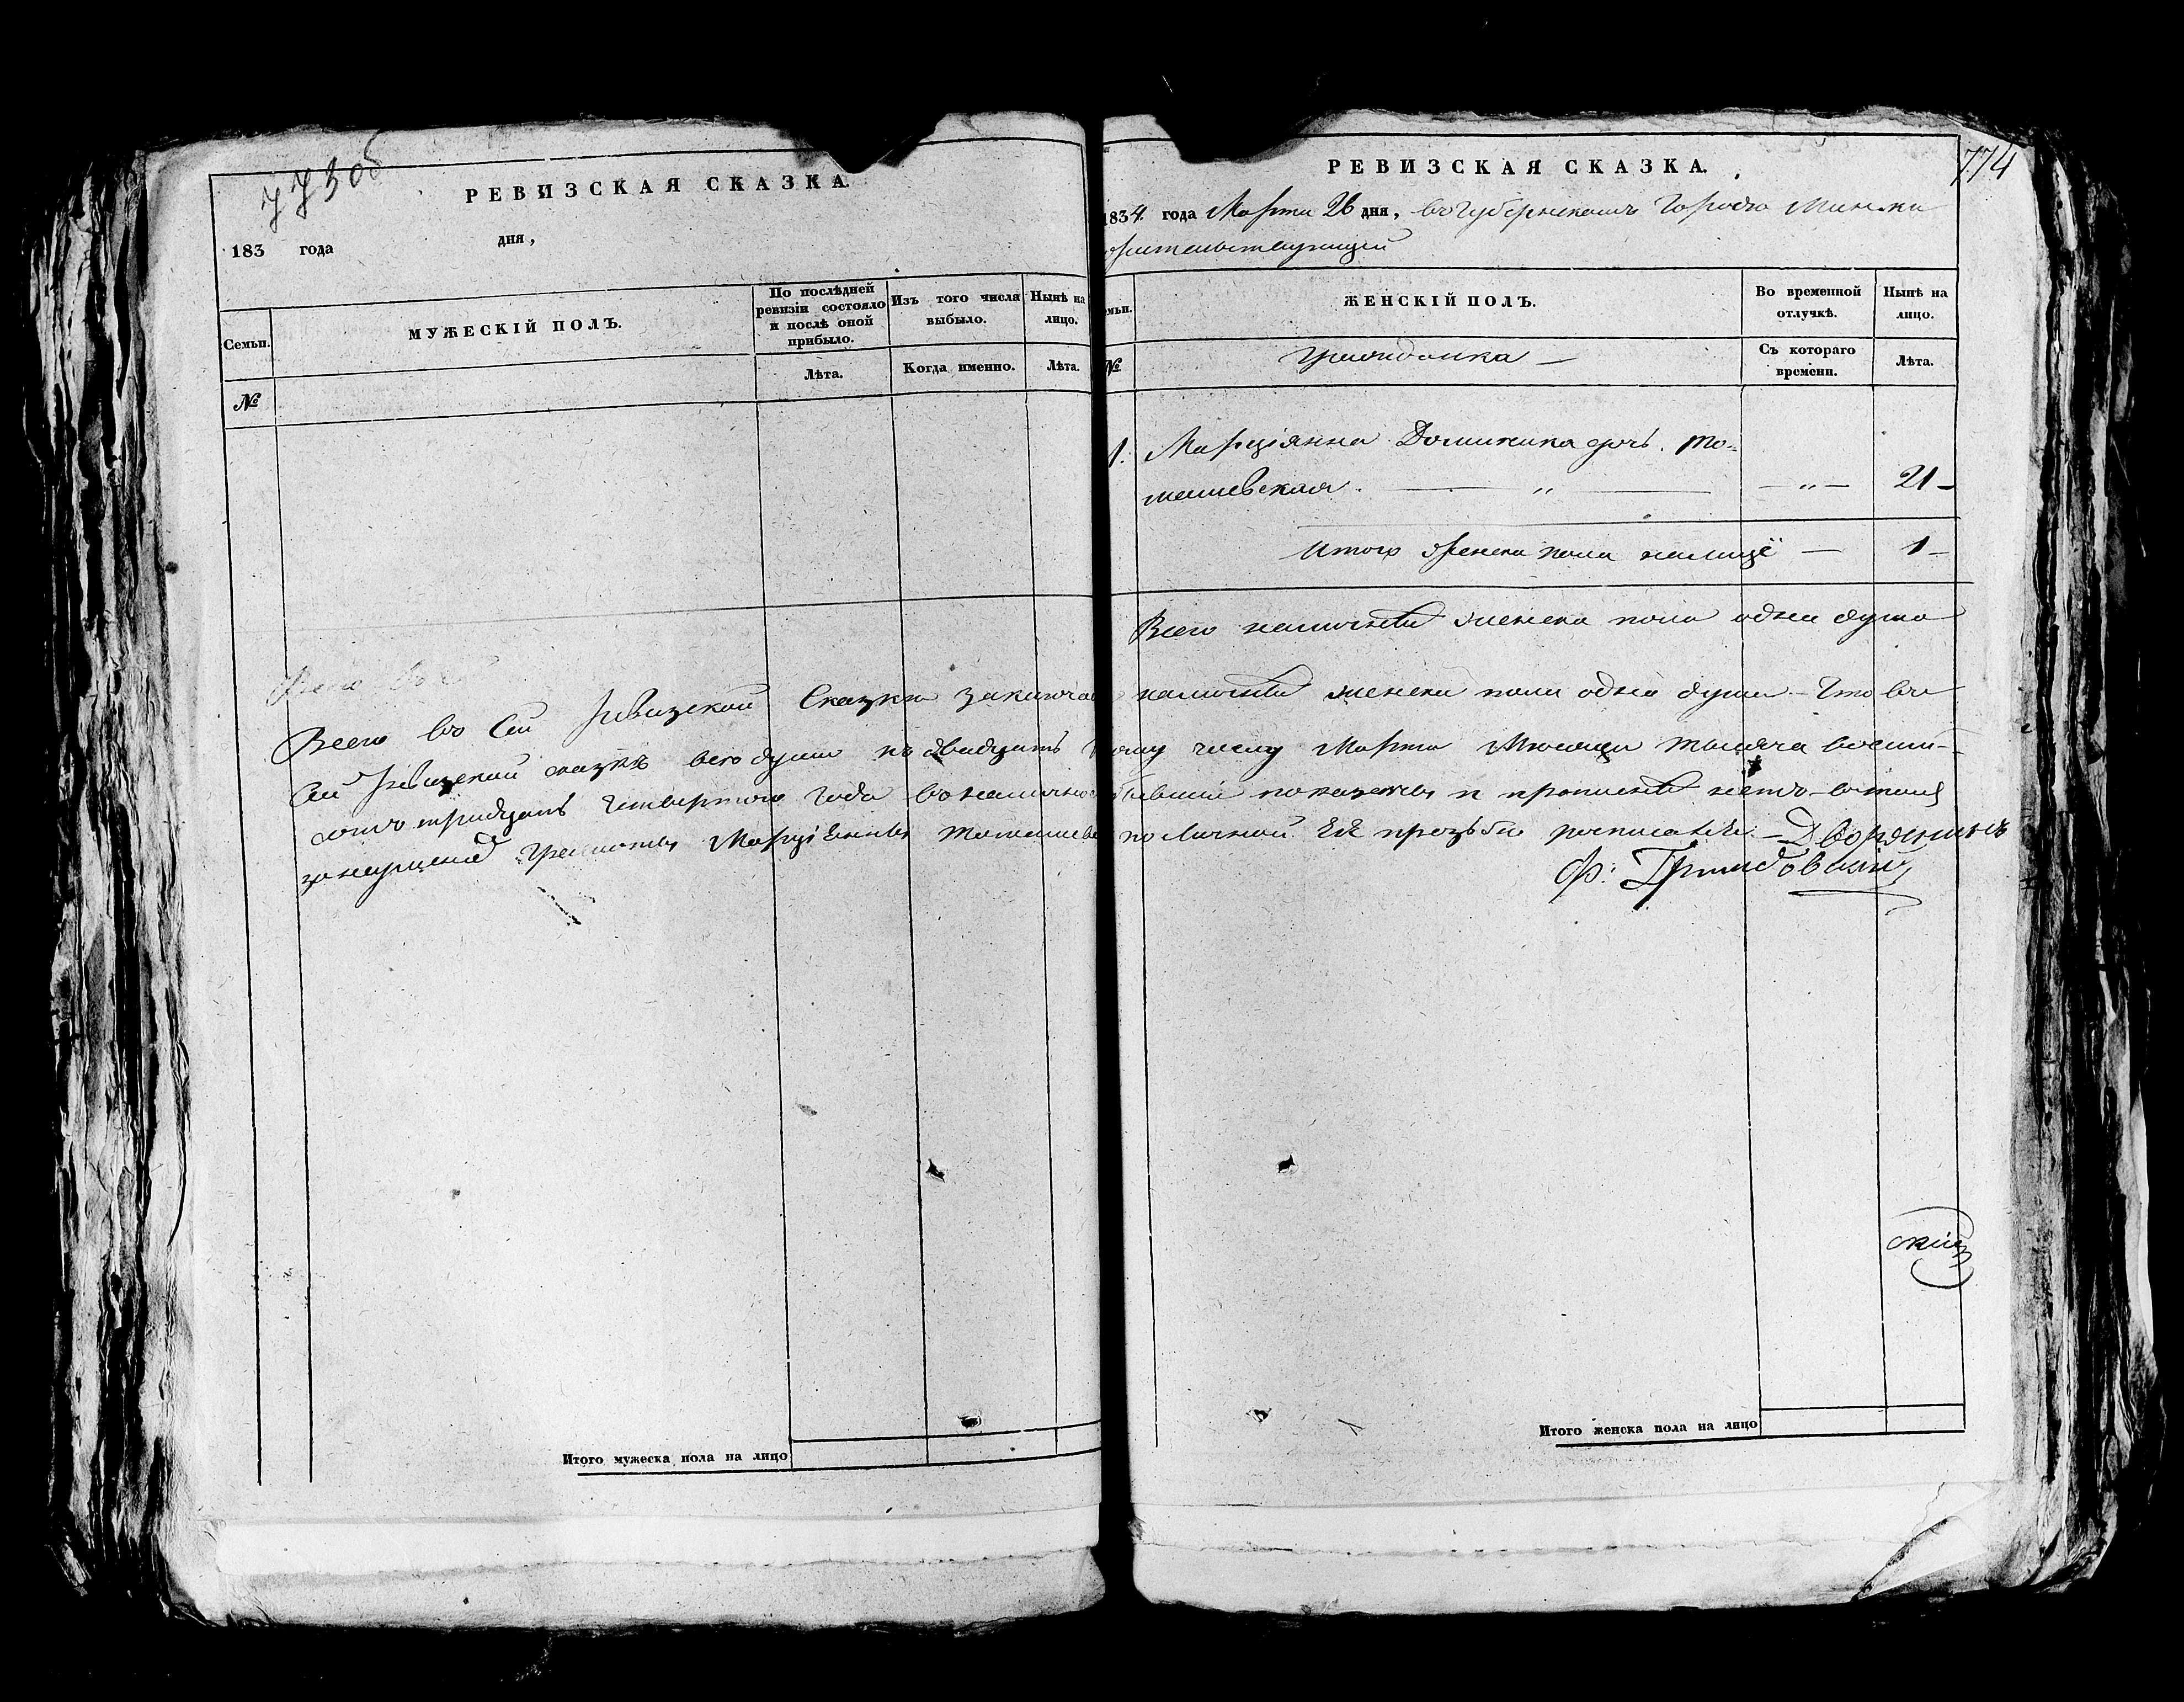 773об
РЕВИЗСКАЯ СКАЗКА.
183 года дня,
Семьи.
МУЖЕСКІЙ ПОЛЪ.
По послѣдней ревизіи состояло и послѣ оной прибыло.
Изъ того числа выбыло.
Нынѣ на лицо.
№
Лѣта.
Когда именно.
Лѣта.
774
РЕВИЗСКАЯ СКАЗКА.
1834 года Марта 26 дня, въ Губернскомъ Городѣ Минскѣ
жительствующей
ЖЕНСКІЙ ПОЛЪ.
Во временной отлучкѣ.
Нынѣ на лицо.
№
гражданка —
Съ котораго времени.
Лѣта.
1. Марціянна Доминика дочь. То-
машевская. — „ — — „ — 21 —
Итого женска пола налицо — 1 —
Всего наличной женска пола одна душа
Всего въ сей ревизской сказкѣ заключае наличной женска пола одна душа — Что въ
сей ревизской сказкѣ всѣ души къ двадцать ому числу Марта Мѣсяца тысяча восемь-
сотъ тридцать четвертого года въ наличнос бывшіе показаны и прописной нѣтъ — въ томъ
за неуменіе грамоты Марціянны Томашевс по личной Её прозьбе росписался — Дворянинъ
Ф:
скій
Итого мужеска пола на лицо
Итого женска пола на лицо